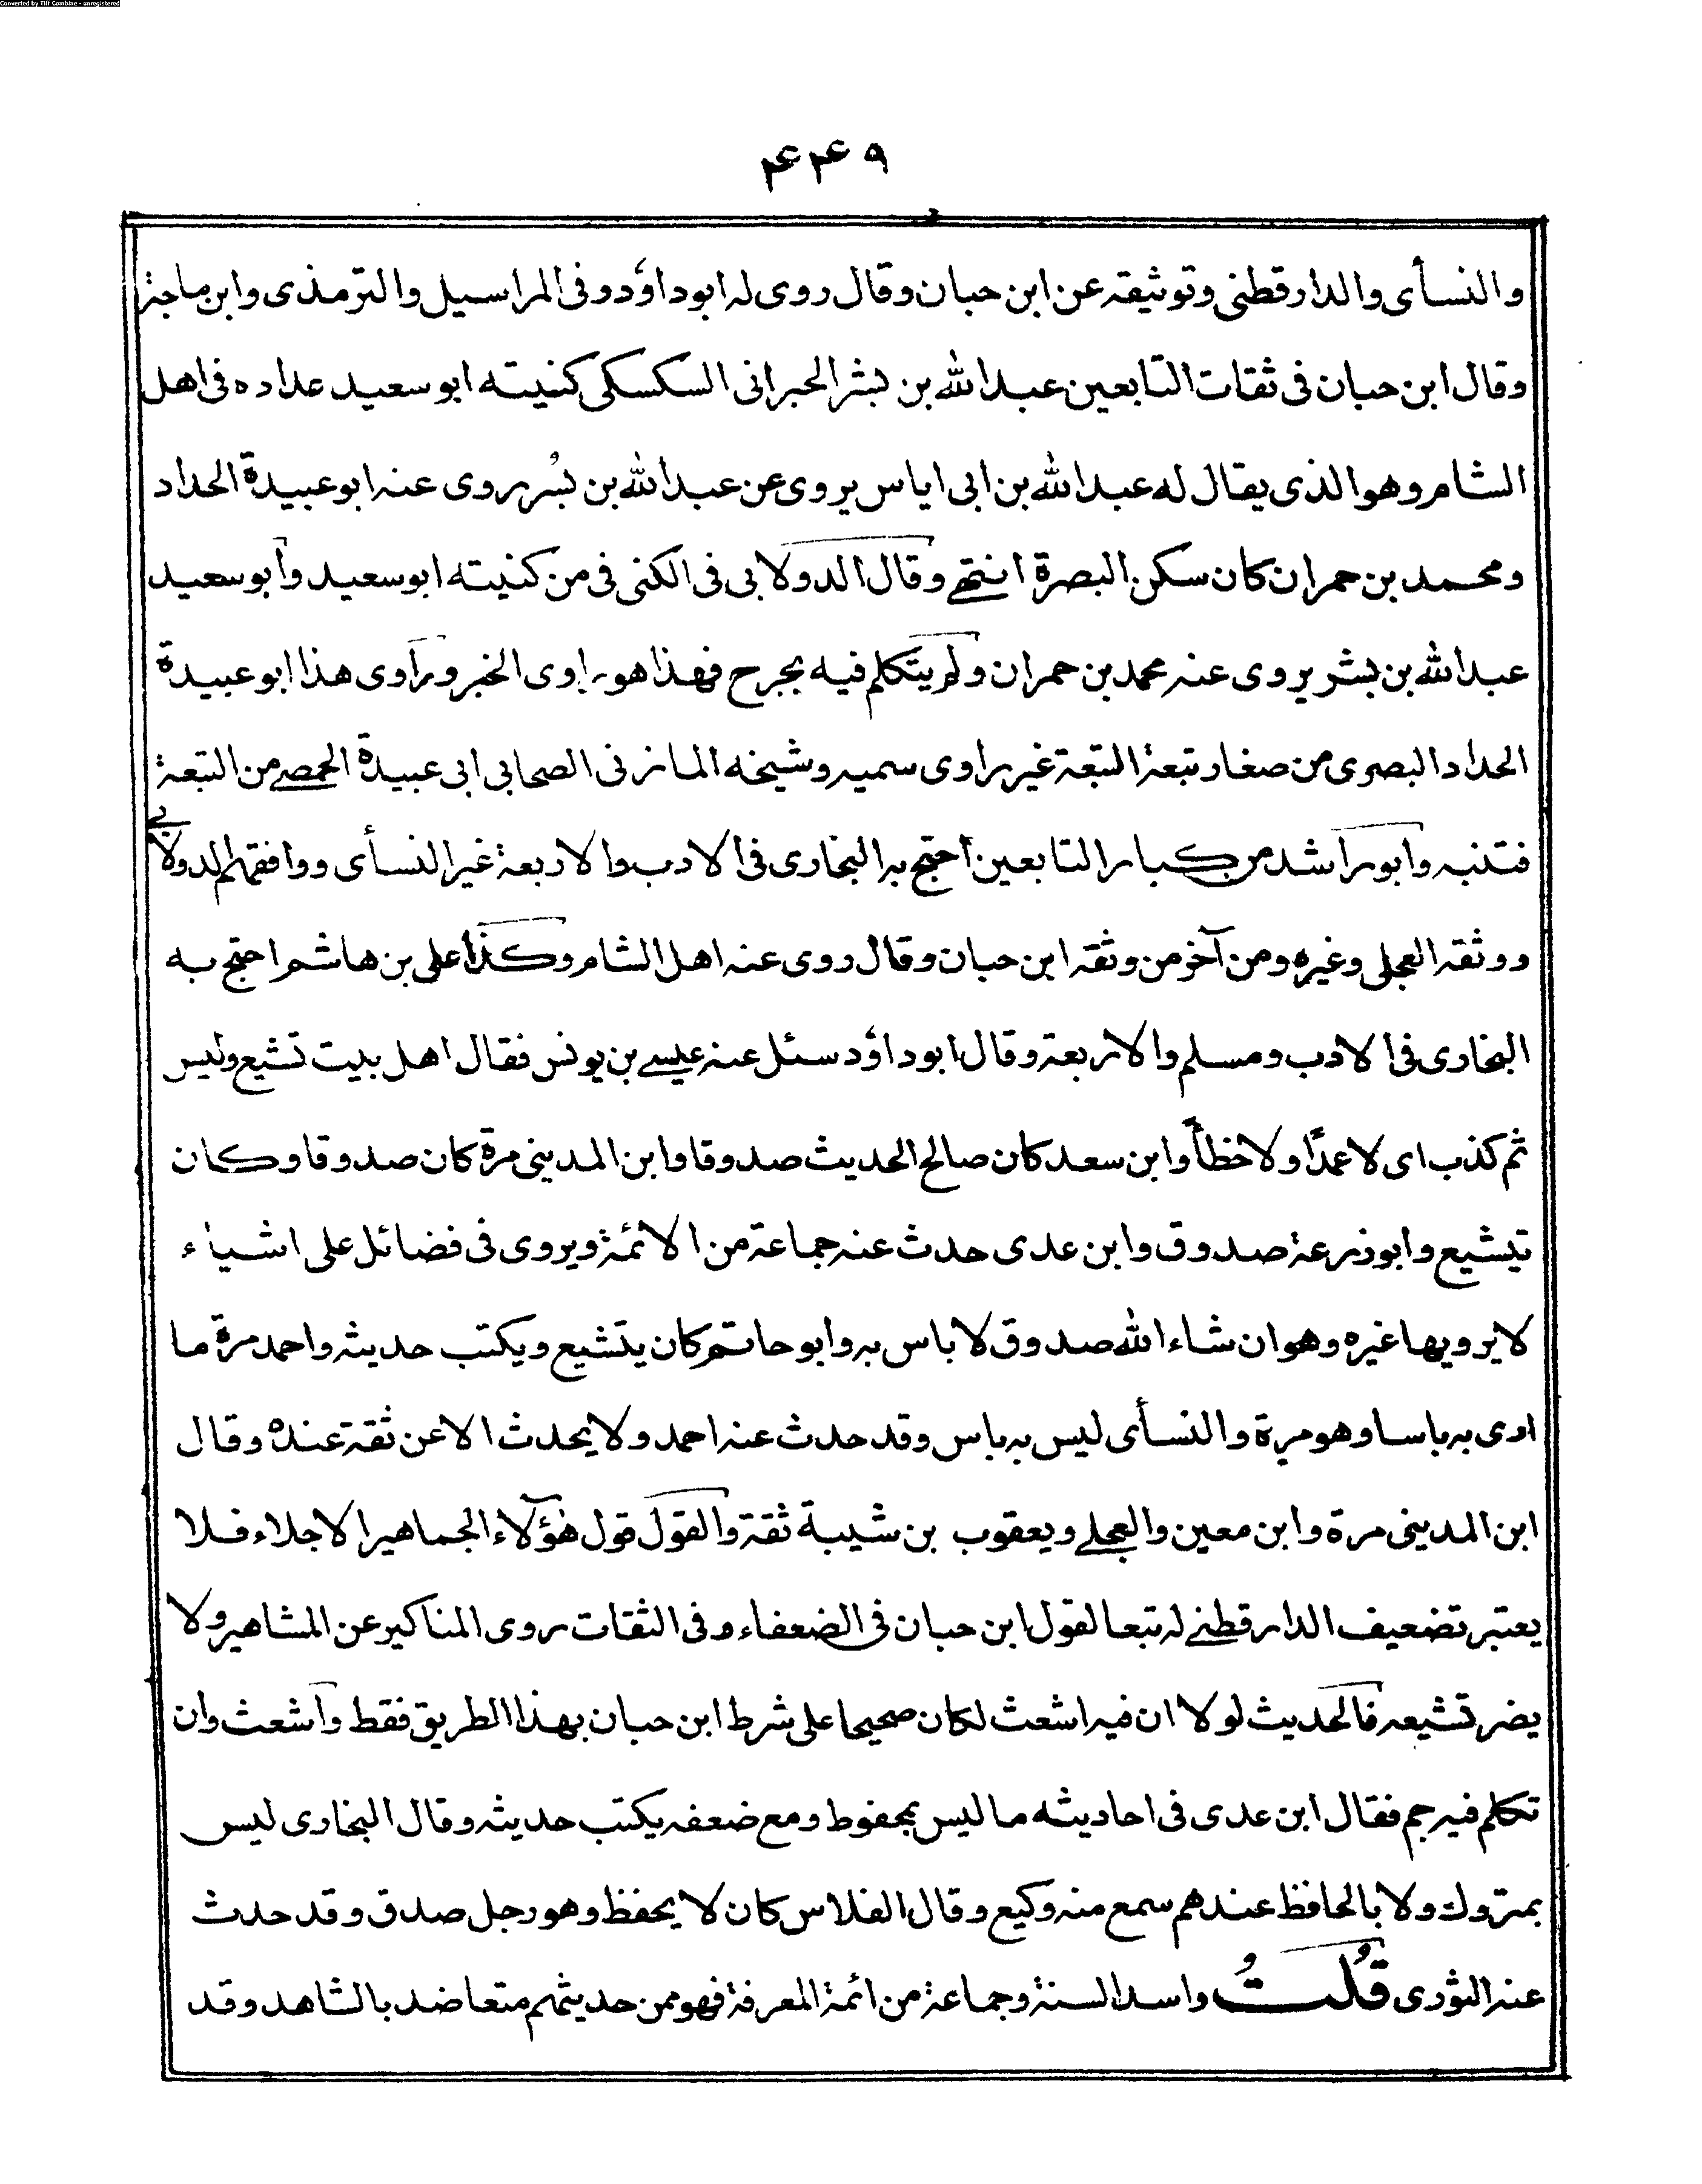 Converted by Tiff Combine - unregistered
۴۴۹
والنسأى والدارقطنى وتوثيقه عن ابن حبان وقال روى له ابوداؤد وفى المراسيل والترمذى وابن ماجة
وقال ابن حبان فى ثقات التابعين عبدالله بن بشر الحبرانى السكسكى كنيته ابو سعيد عداده فى اهل
الشام وهو الذى يقال له عبدالله بن ابى اياس يروى عن عبدالله بن بُسر روى عنه ابو عبيدة الحداد
ومحمد بن حمران كان سكن البصرة انتهى وقال الدولابى فى الكنى فى من كنيته ابو سعيد وأبو سعيد
عبدالله بن بشر يروى عنه محمد بن حمران ولم يتكلم فيه بجرح فهذا هو راوى الخبر وراوى هذا ابو عبيدة
الحداد البصرى من صغار تبعة التبعة غير راوى سميه وشيخه المازنى الصحابى ابى عبيدة الحمصى من التبعة
فتنبه وابو راشد من كبار التابعين احتج به البخارى فى الادب والاربعة غير النسأى ووافقهم الدولابى
ووثقه العجلى وغيره ومن آخر من وثقه ابن حبان وقال روى عنه اهل الشام وكذا على بن هاشم احتج به
البخارى فى الادب ومسلم والاربعة وقال ابوداؤد سئل عنه عيسى بن يونس فقال اهل بيت تشيع وليس
ثم كذب اى لا عمدًا ولا خطأً وابن سعد كان صالح الحديث صدوقا وابن المدينى مرة كان صدوقا وكان
تيشيع وابو زرعة صدوق وابن عدى حدث عنه جماعة من الائمة ويروى فى فضائل على اشياء
لا يرويها غيره وهو ان شاء الله صدوق لا باس به وابو حاتم كان يتشيع ويكتب حديثه واحمد مرة ما
ارى به باسا وهو مرة والنسأى ليس به باس وقد حدث عنه احمد ولا يحدث الا عن ثقة عنده وقال
ابن المدينى مرة وابن معين والعجلى ويعقوب بن شيبة ثقة والقول قول هؤلاء الجماهير الاجلاء فلا
يعتبر تضعيف الدارقطنى له تبعا لقول ابن حبان فى الضعفاء وفى الثقات روى المناكير عن المشاهير ولا
يضر تشيعه فالحديث لولا ان فيه اشعث لكان صحيحا على شرط ابن حبان بهذا الطريق فقط وأشعث وان
تكلم فيه جم فقال ابن عدى فى احاديثه ما ليس بمحفوظ ومع ضعفه يكتب حديثه وقال البخارى ليس
بمتروك ولا بالحافظ عندهم سمع منه وكيع وقال الفلاس كان لا يحفظ وهو رجل صدق وقد حدث
عنه الثورى قُلتُ واسد السنة وجماعة من ائمة المعرفة فهو ممن حديثهم متعاضد بالشاهد وقد